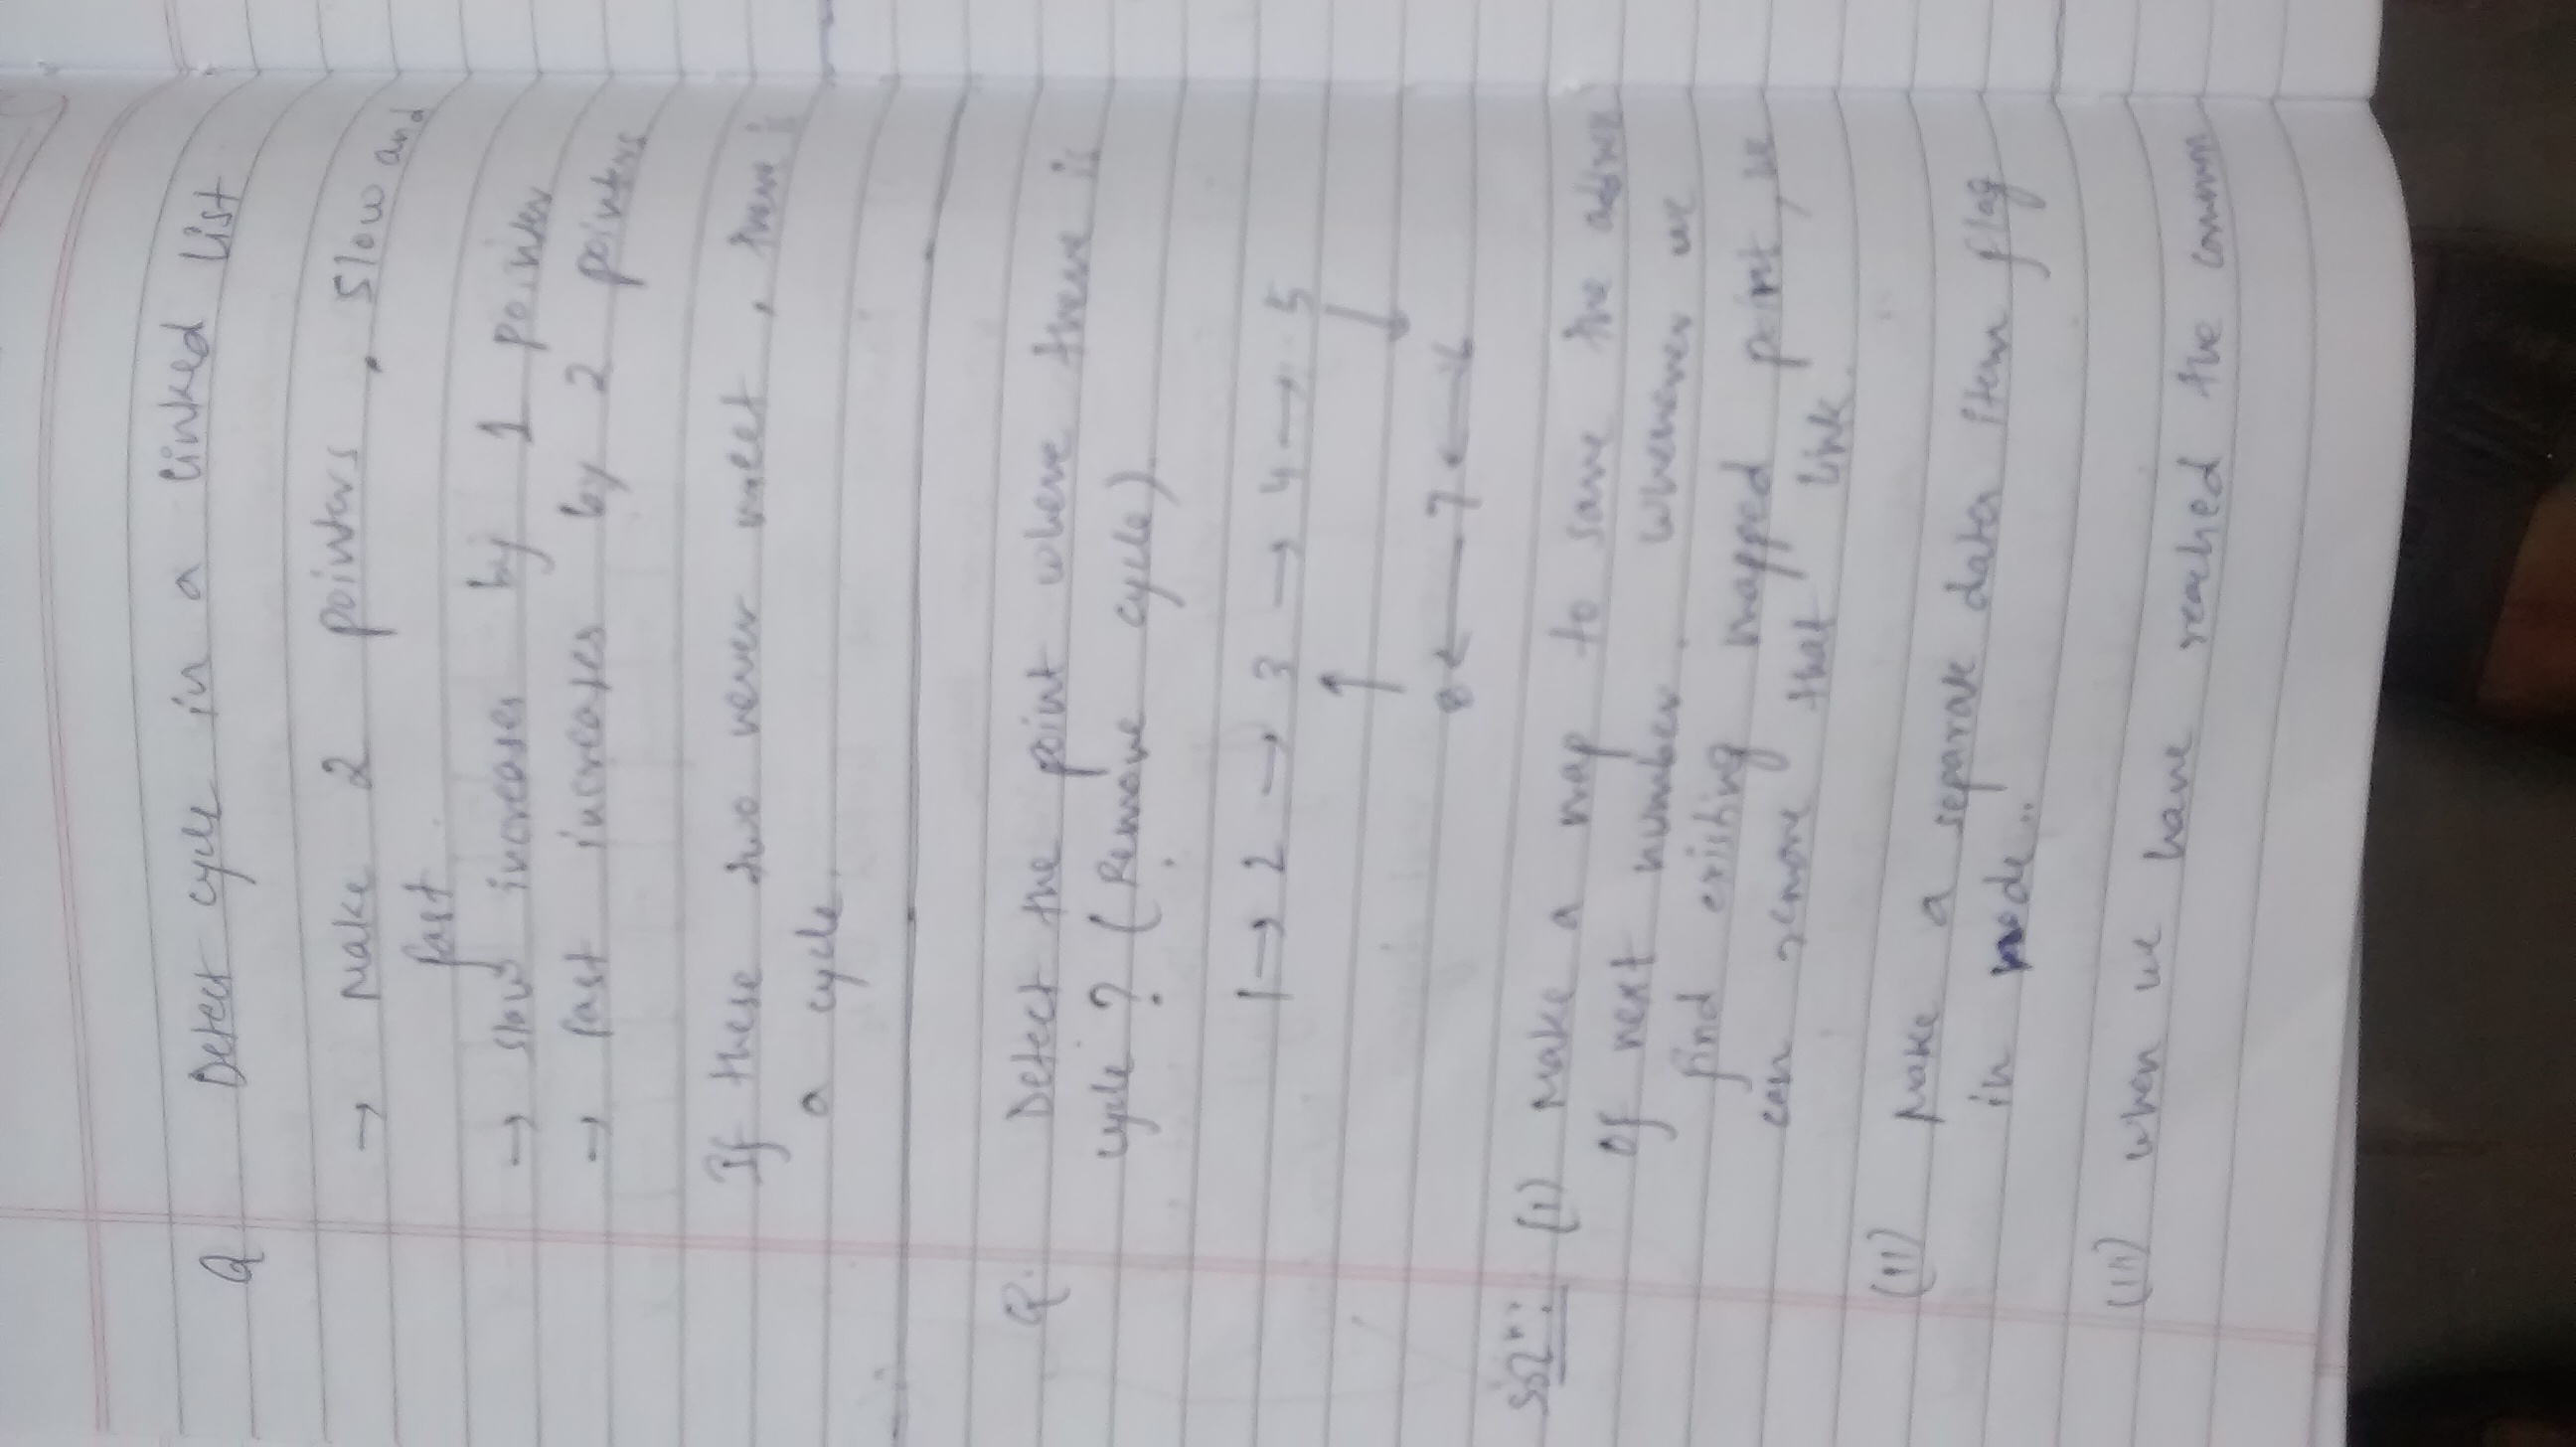 Q Detect cycle in a linked list
→ Make 2 pointers, slow and
fast.
→ slow increases by 1 pointer
→ fast increases by 2 pointers
If these two never meet, there is
a cycle.
Q. Detect the point where there is
cycle? (Remove cycle).
1 → 2 → 3 → 4 → 5
↑ ↓
8 ← 7 ← 6
Solⁿ: (i) Make a map to save the address
of next number. whenever we
find existing mapped point, we
can remove that link.
(ii) Make a separate data item flag
in node..
(iii) when we have reached the common